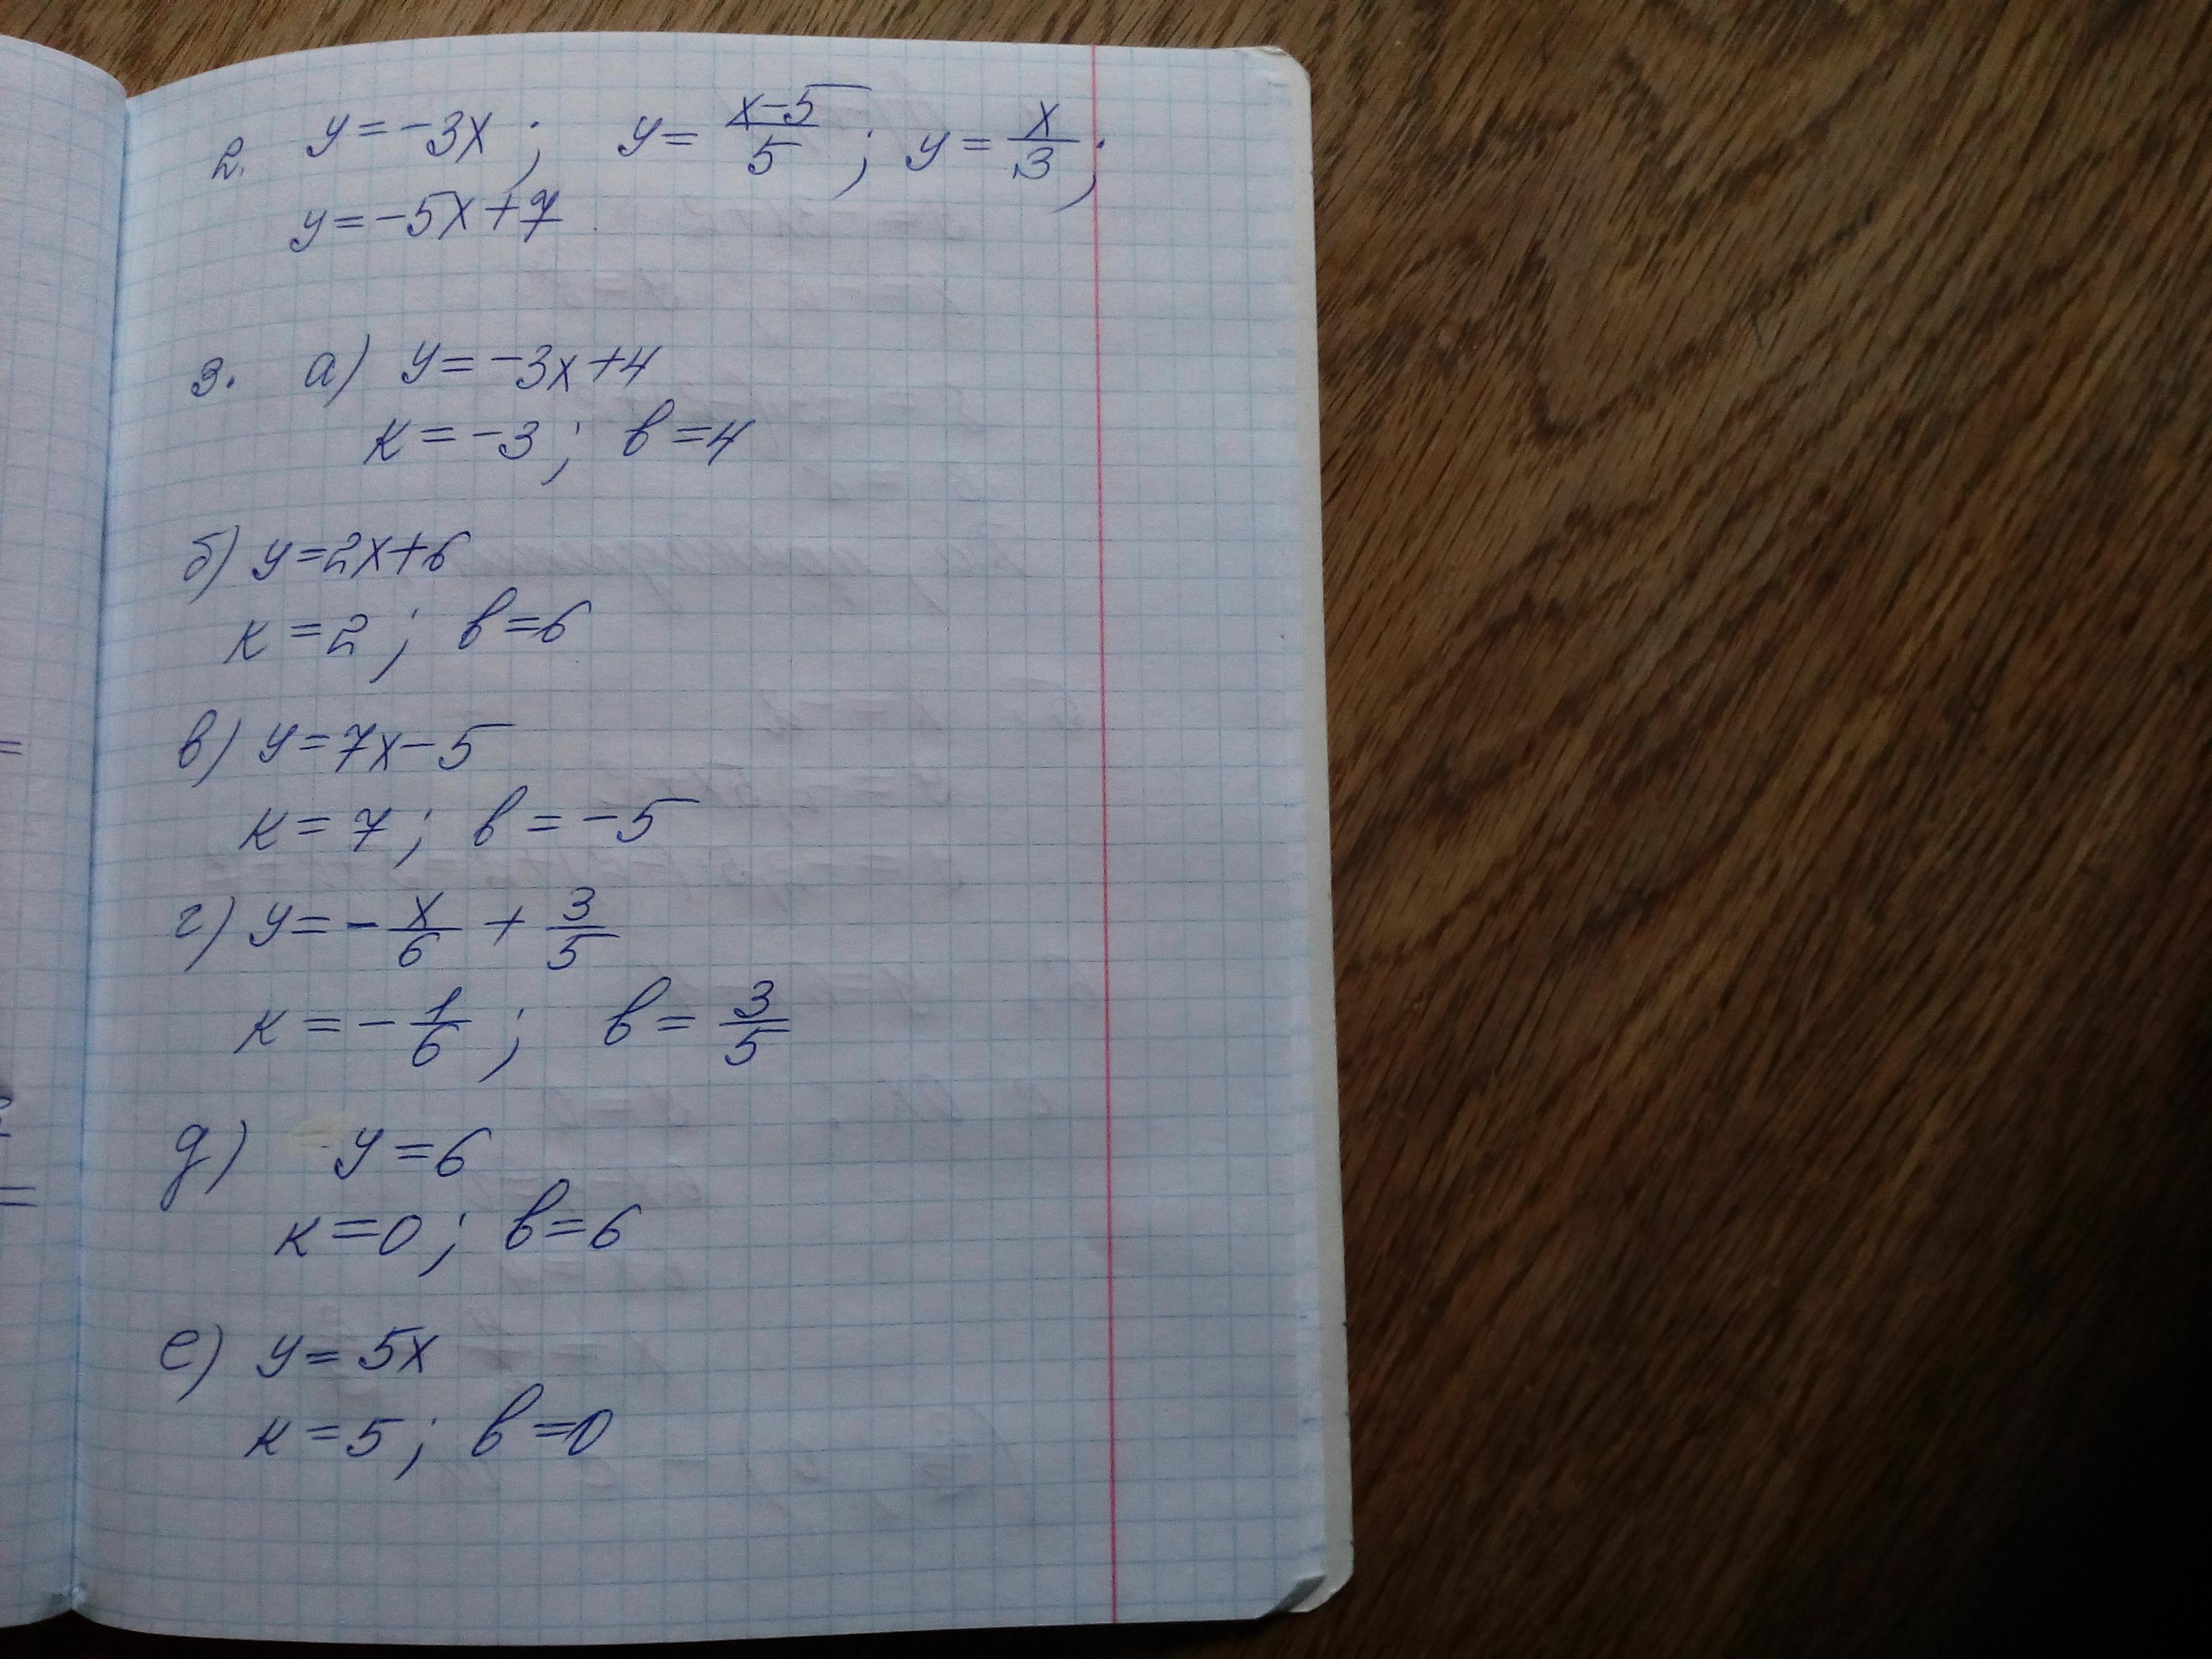 2. y=-3x; y=\frac{x-5}{5}; y=\frac{x}{3};
y=-5x+7
3. а) y=-3x+4
к=-3; в=4
б) y=2x+6
к=2; в=6
в) y=7x-5
к=7; в=-5
г) y=-\frac{x}{6}+\frac{3}{5}
к=-\frac{1}{6}; в=\frac{3}{5}
д) y=6
к=0; в=6
е) y=5x
к=5; в=0